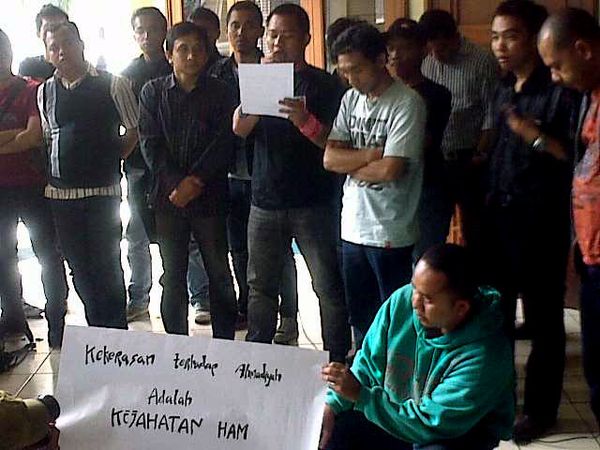 Kekerasan terhadap Ahmadiyah
Adalah
KEJAHATAN HAM